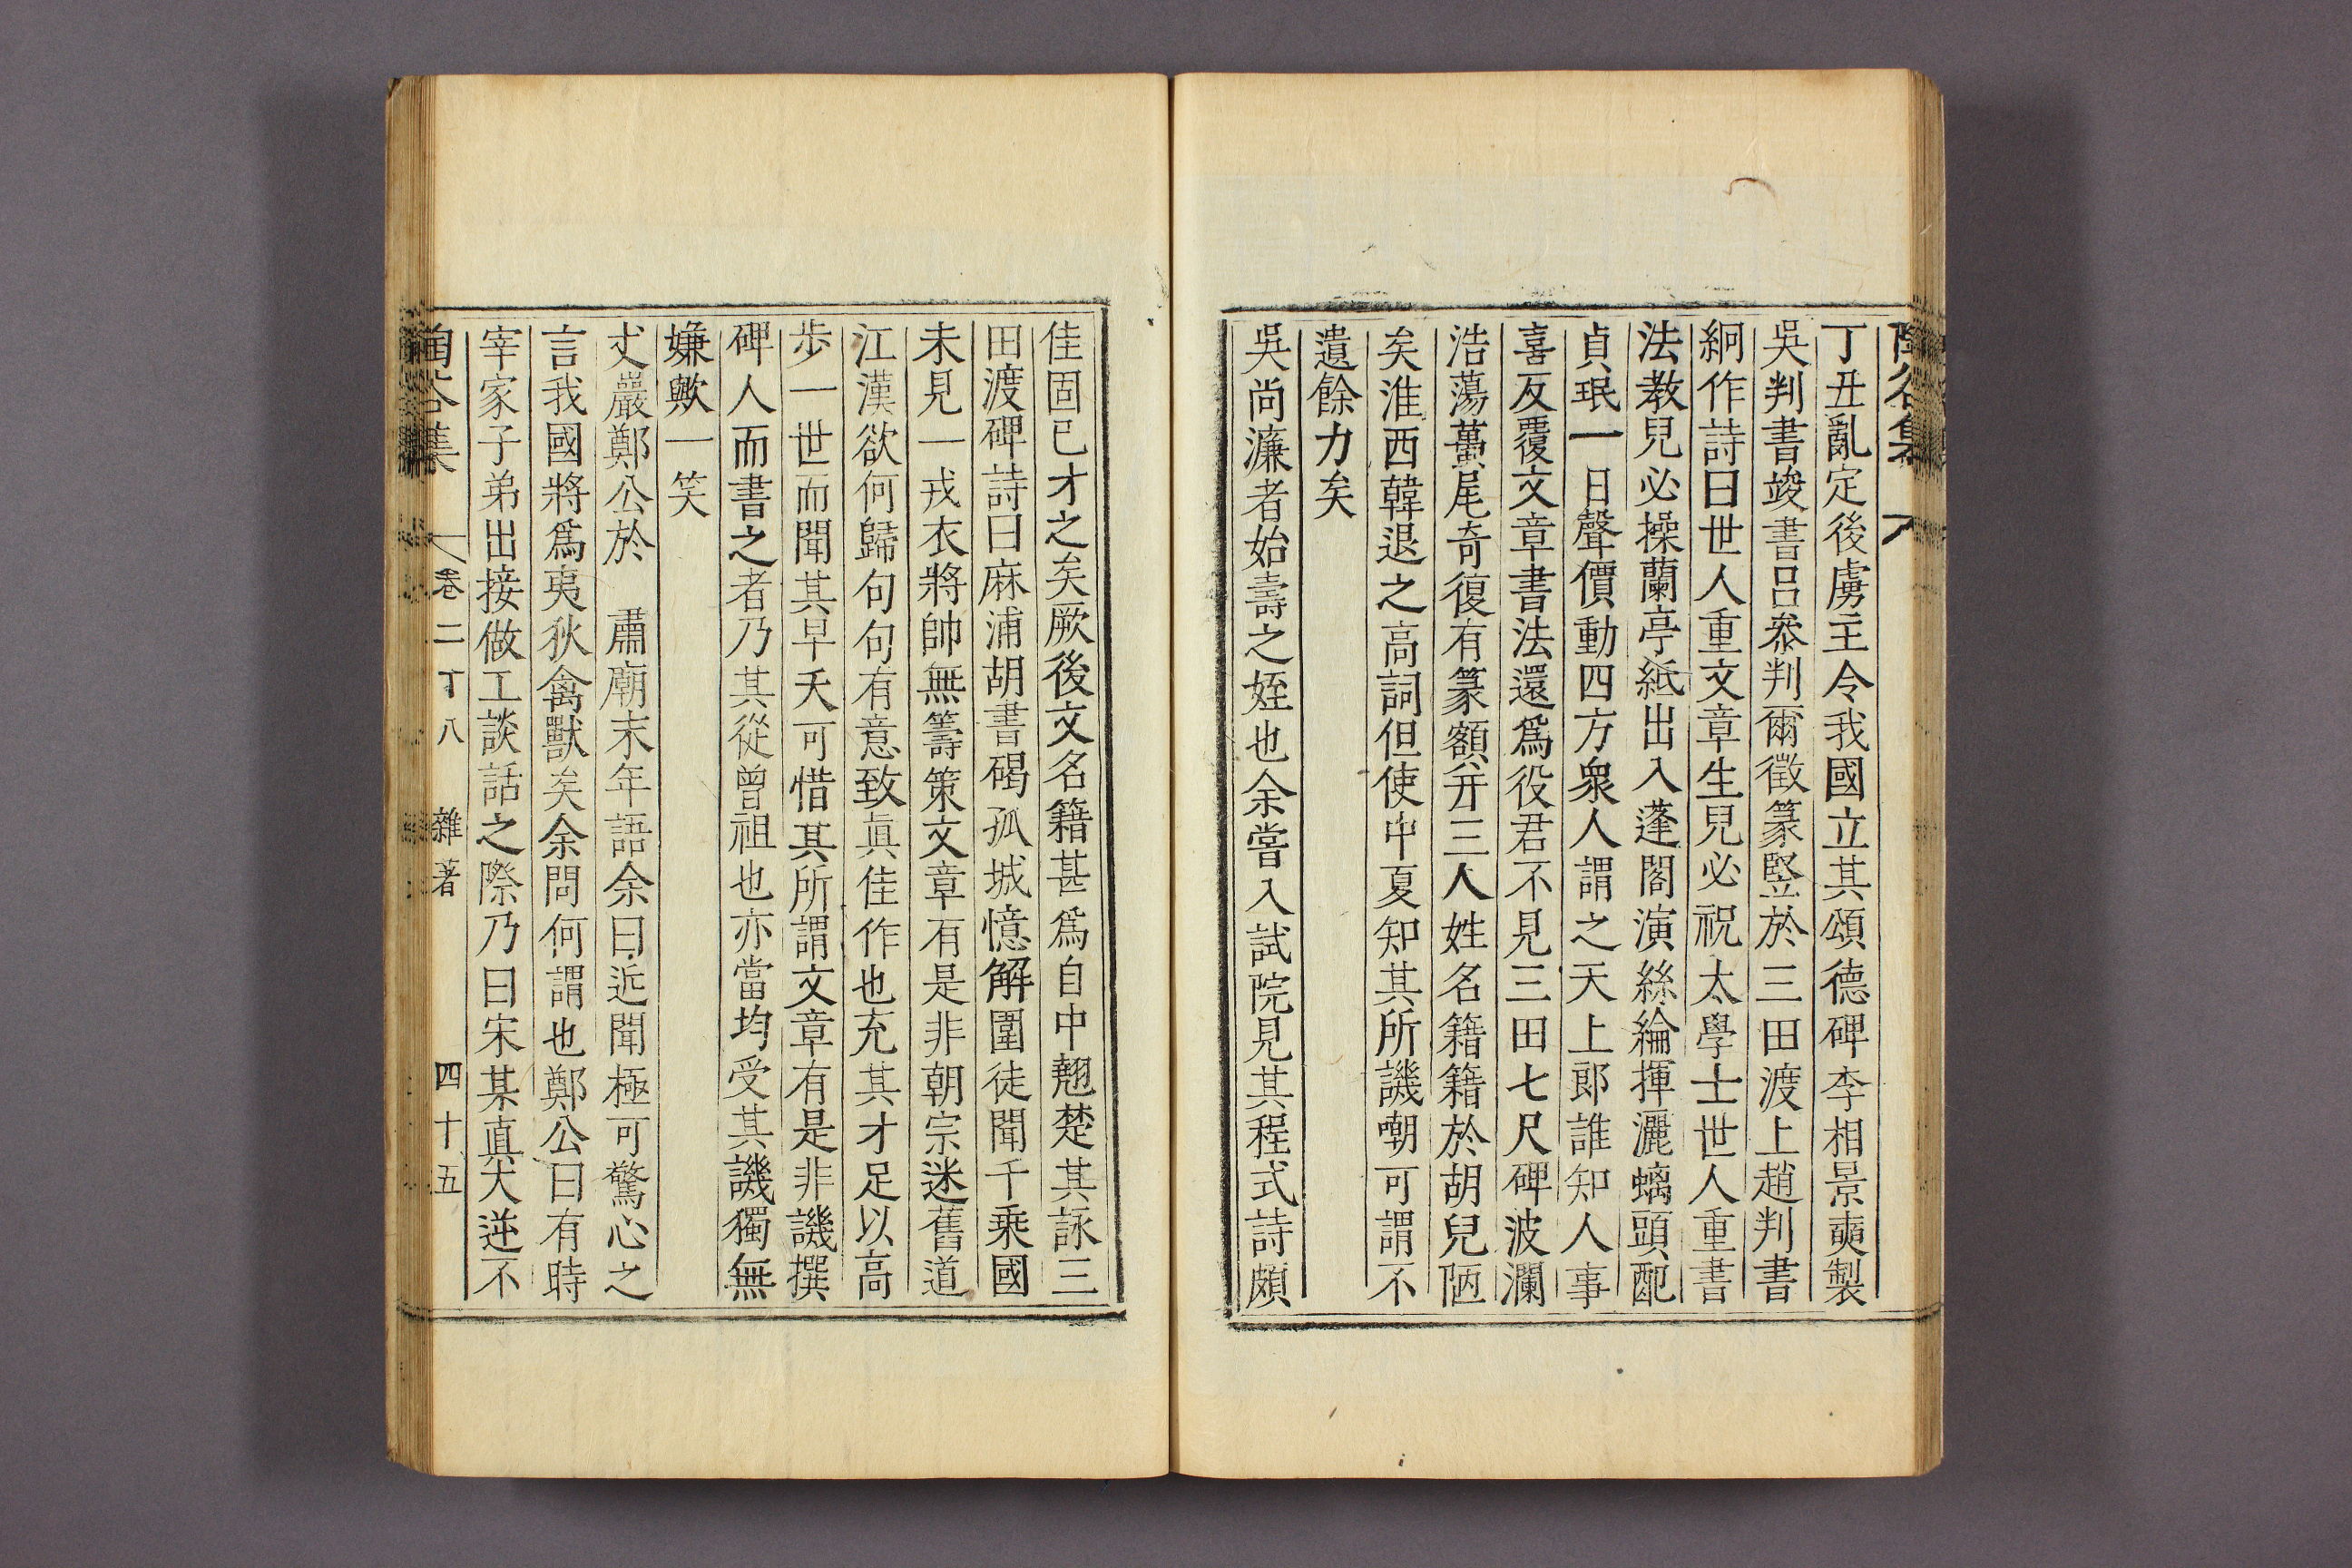 丁丑亂定後虜主令我國立其頌德碑李相景奭製
吳判書竣書呂參判爾徵篆竪於三田渡上趙判書
絅作詩曰世人重文章生兒必祝太學士世人重書
法教兒必操蘭亭紙出入蓬閣演絲綸揮灑螭頭配
貞珉一日聲價動四方衆人謂之天上郎誰知人事
喜反覆文章書法還爲役君不見三田七尺碑波瀾
浩蕩蠆尾奇復有篆額幷三人姓名籍籍於胡兒陋
矣淮西韓退之高詞但使中夏知其所譏嘲可謂不
遺餘力矣
吳尚濂者始壽之姪也余嘗入試院見其程式詩頗
佳固已才之矣厥後文名籍甚爲自中翹楚其詠三
田渡碑詩曰麻浦胡書碣孤城憶解圍徒聞千乘國
未見一戎衣將帥無籌策文章有是非朝宗迷舊道
江漢欲何歸句句有意致眞佳作也充其才足以高
步一世而聞其早夭可惜其所謂文章有是非譏撰
碑人而書之者乃其從曾祖也亦當均受其譏獨無
嫌歟一笑
丈巖鄭公於 肅廟末年語余曰近聞極可驚心之
言我國將爲夷狄禽獸矣余問何謂也鄭公曰有時
宰家子弟出接做工談話之際乃曰宋某眞大逆不
陶谷集 卷二十八 雜著 四十五